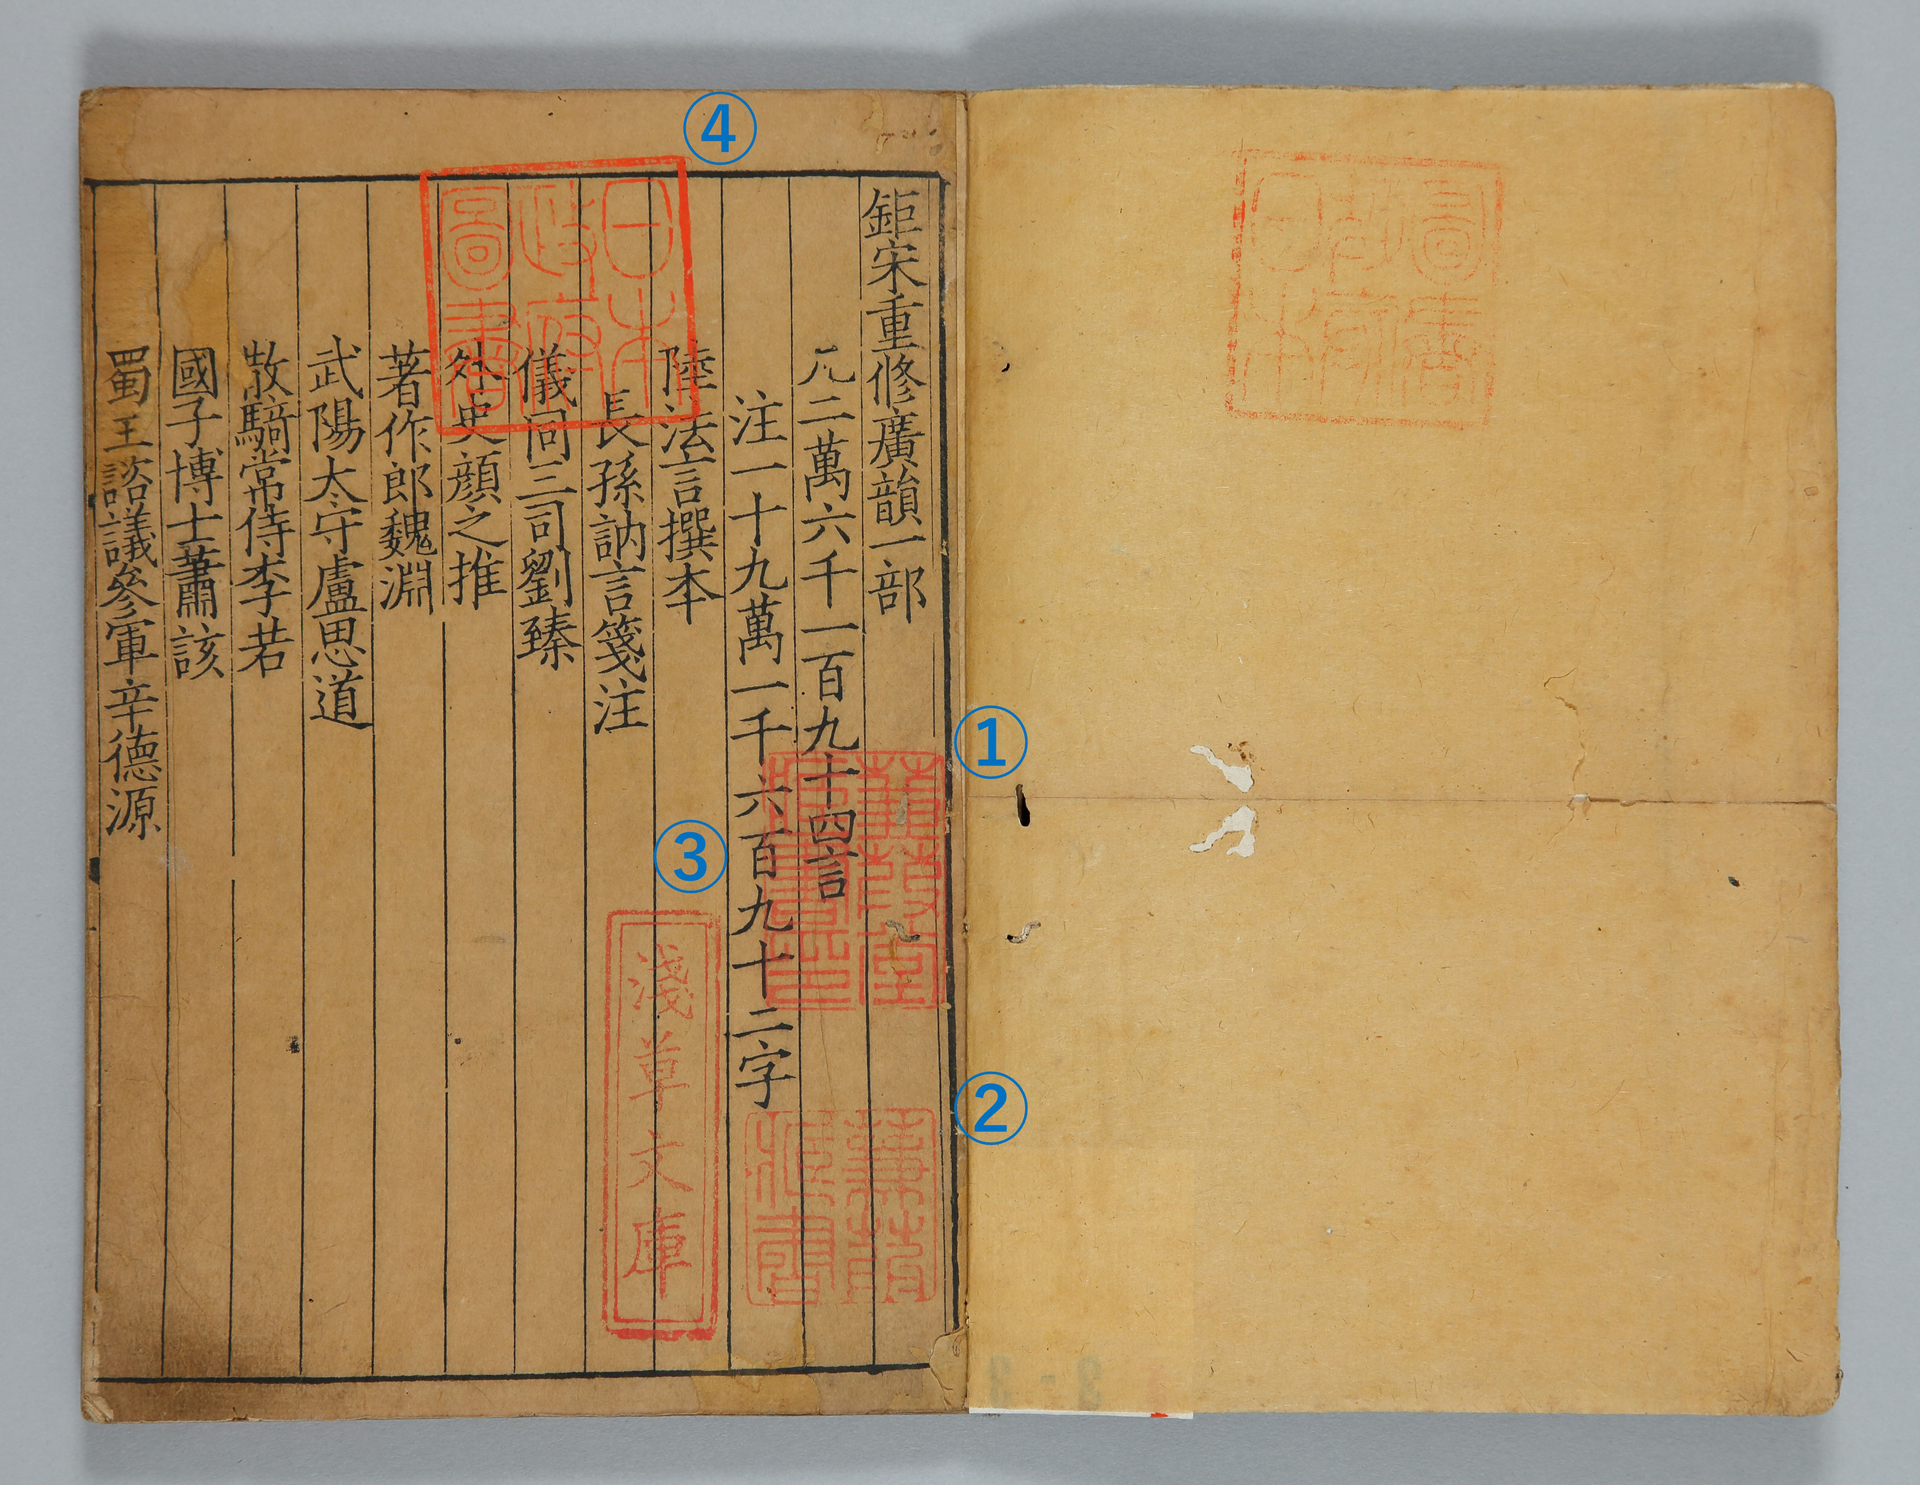 鉅宋重修廣韻一部
凡二萬六千一百九十四言
注一十九萬一千六百九十二字
陸法言撰本
長孫訥言箋注
儀同三司劉臻
外史顔之推
著作郎魏淵
武陽大守盧思道
散騎常侍李若
國子博士蕭該
蜀王諮議參軍辛德源
①
蒹葭堂
藏書印
②
蒹葭
藏書
③
淺草文庫
④
日本
政府
圖書